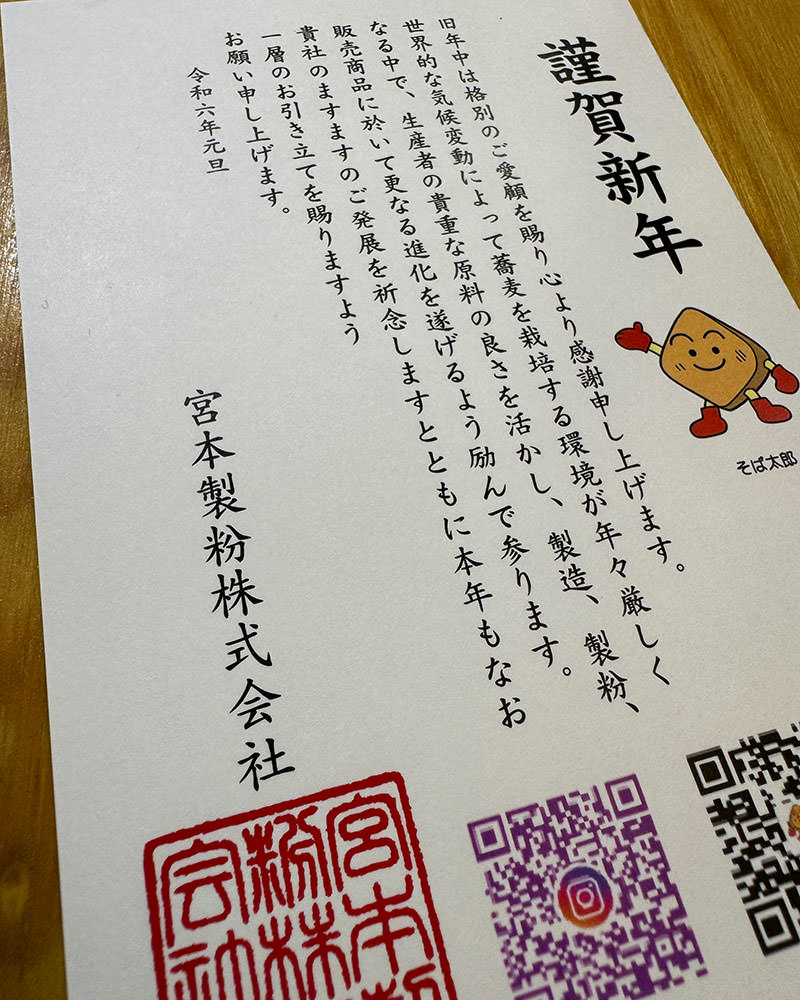 謹賀新年
旧年中は格別のご愛顧を賜り心より感謝申し上げます。
世界的な気候変動によって蕎麦を栽培する環境が年々厳しく
なる中で、生産者の貴重な原料の良さを活かし、製造、製粉、
販売商品に於いて更なる進化を遂げるよう励んで参ります。
貴社のますますのご発展を祈念しますとともに本年もなお
一層のお引き立てを賜りますよう
お願い申し上げます。
令和六年元旦
宮本製粉株式会社
そば太郎
宮本製
粉株
会社